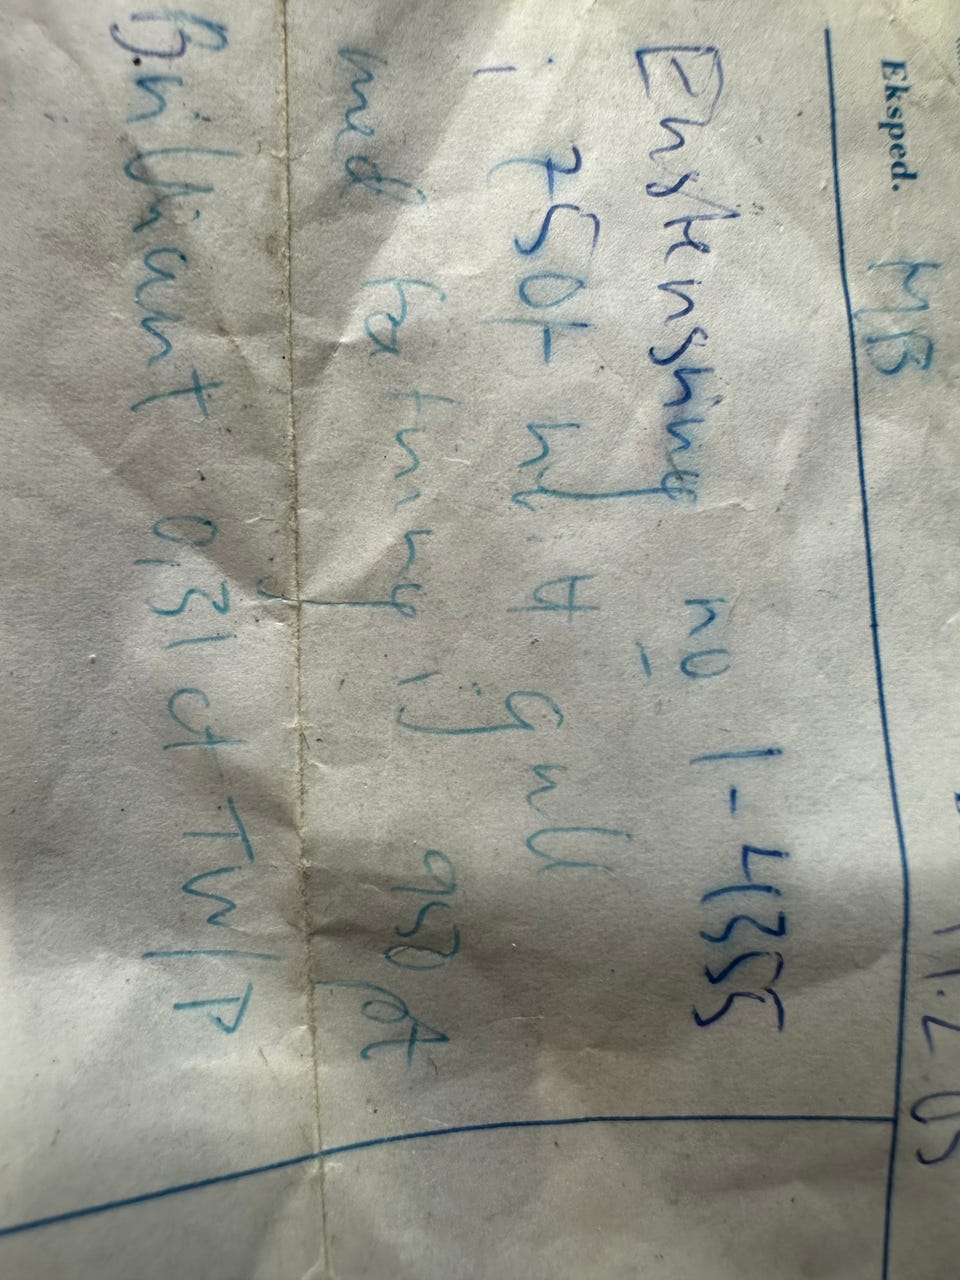 Eksped. MB 11.2.05
Enstensring no 1-4355
i 750+ hv.tt gull
med fatning i 950 pt
Brilliant 0,31 ct TW/P